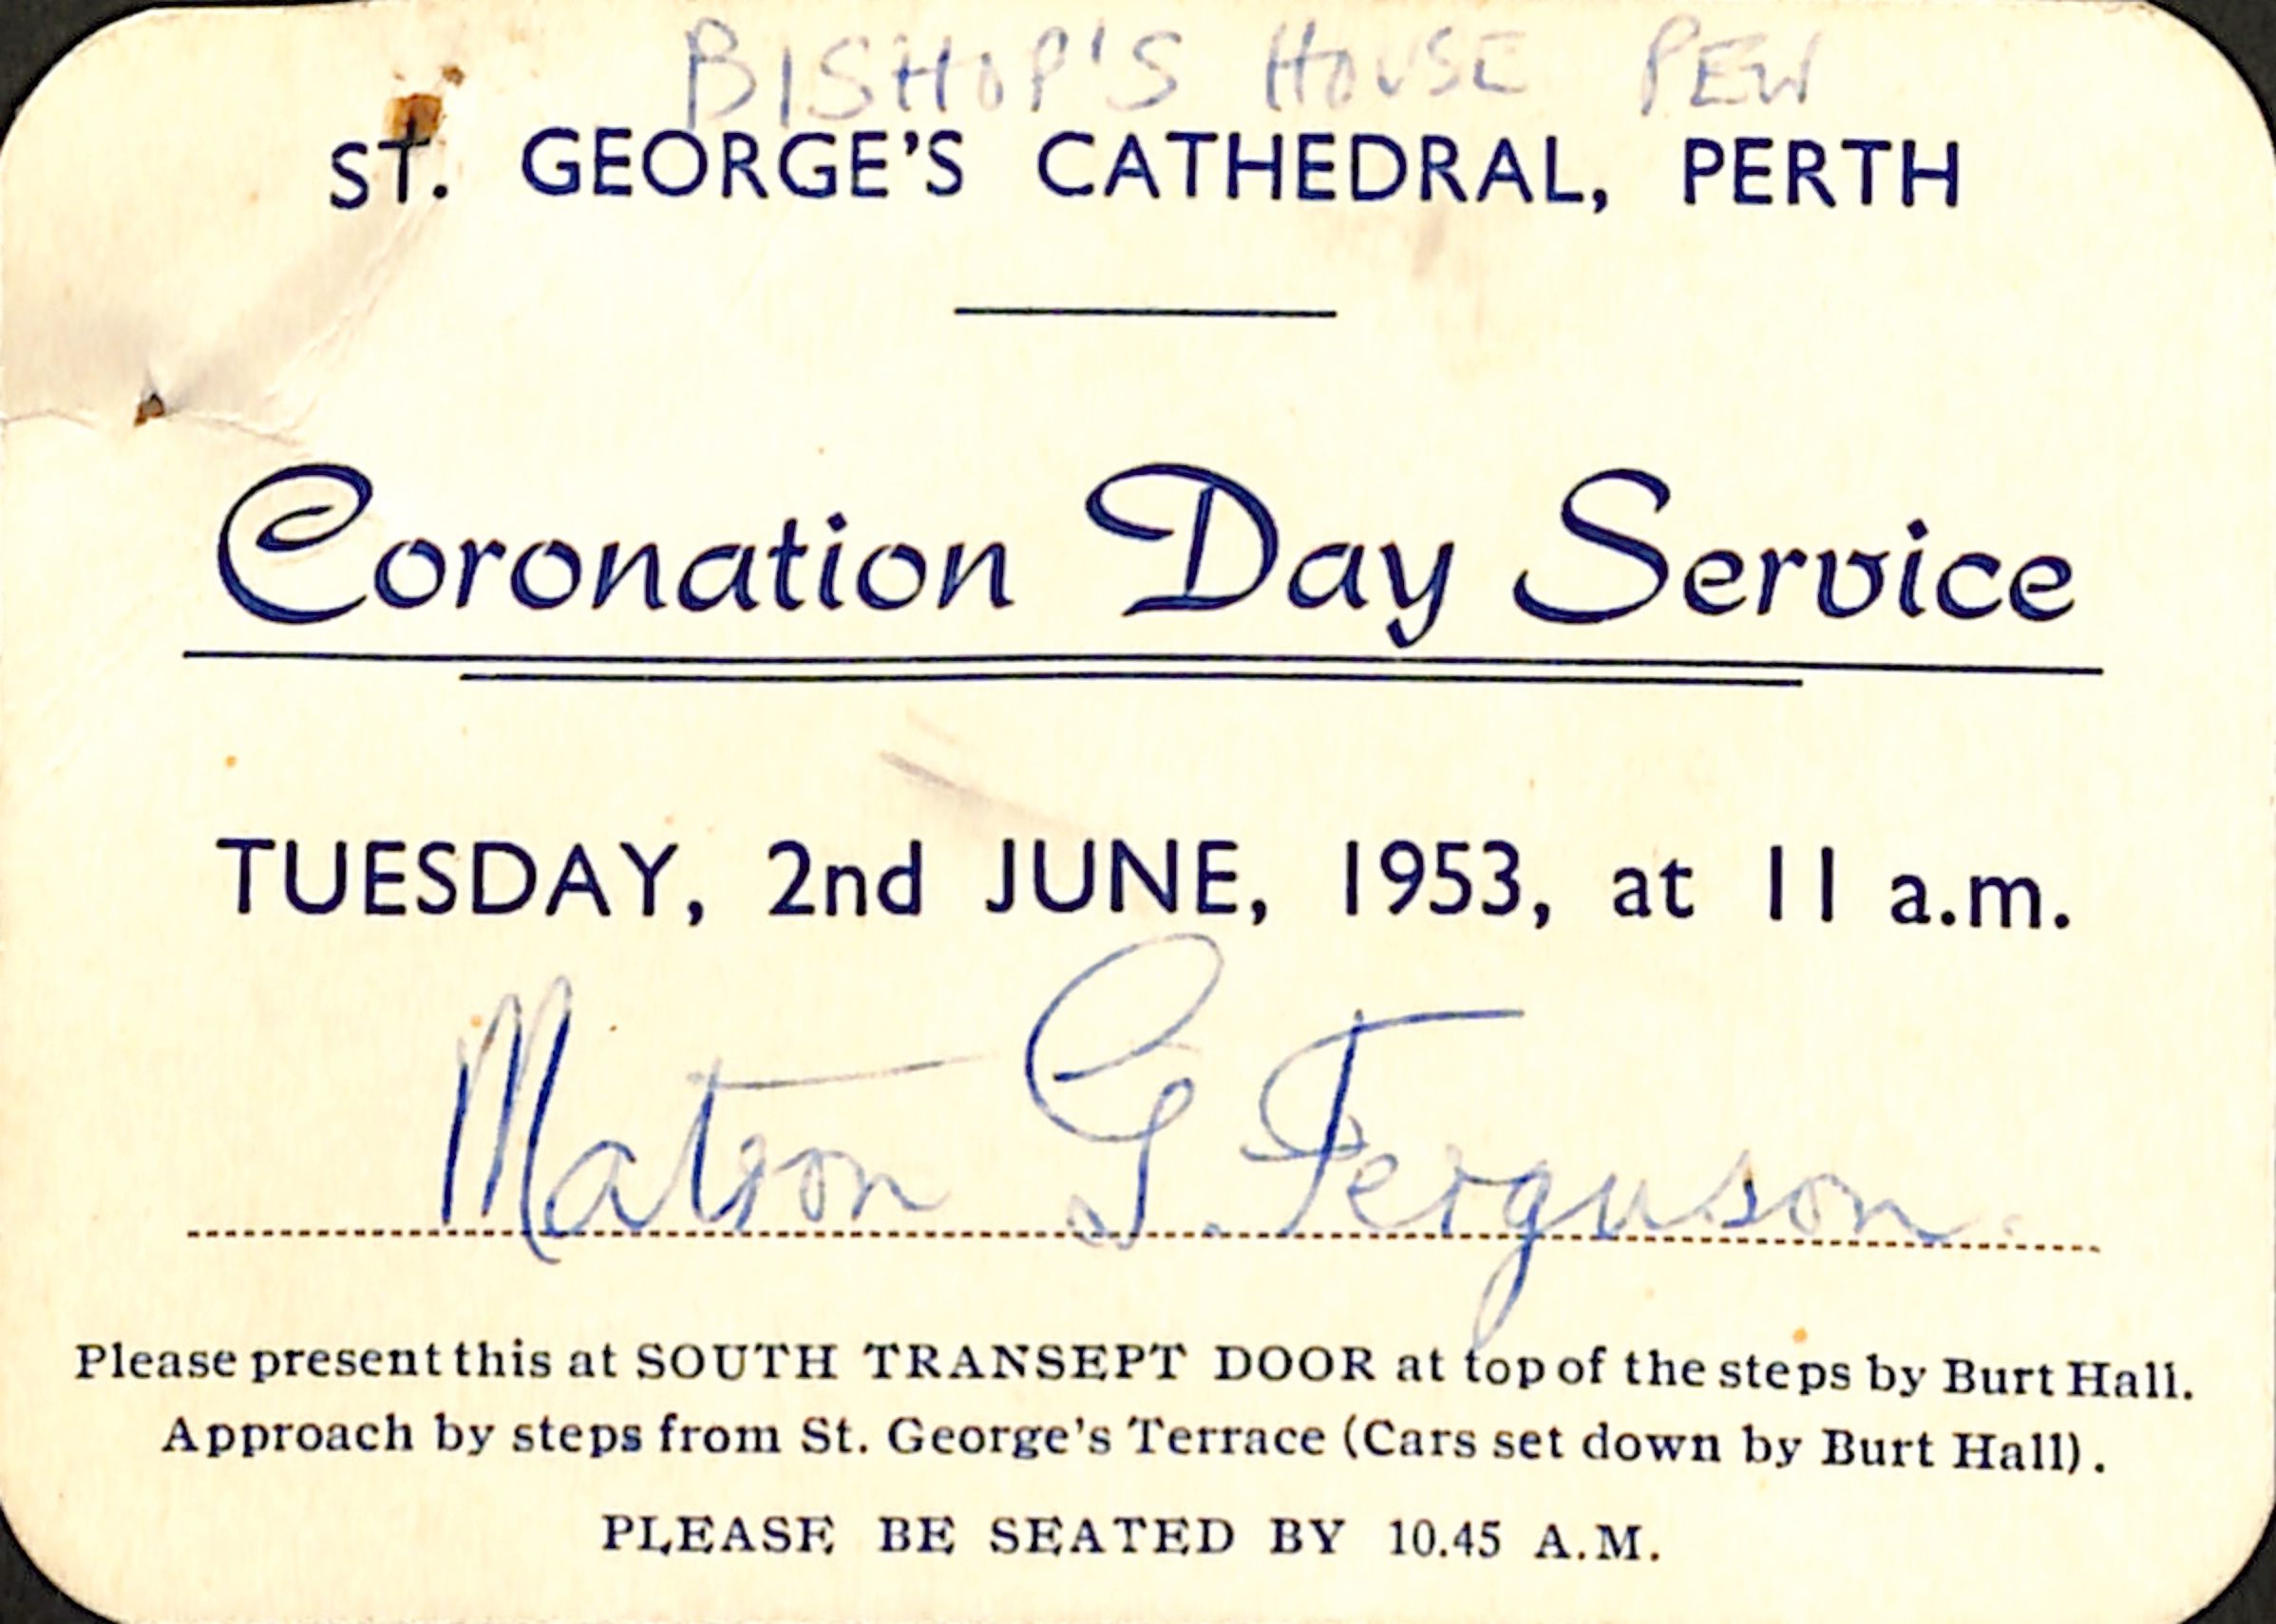 BISHOP'S HOUSE PEW
ST. GEORGE'S CATHEDRAL, PERTH
Coronation Day Service
TUESDAY, 2nd JUNE, 1953, at 11 a.m.
Matron G. Ferguson.
Please present this at SOUTH TRANSEPT DOOR at top of the steps by Burt Hall.
Approach by steps from St. George's Terrace (Cars set down by Burt Hall).
PLEASE BE SEATED BY 10.45 A.M.